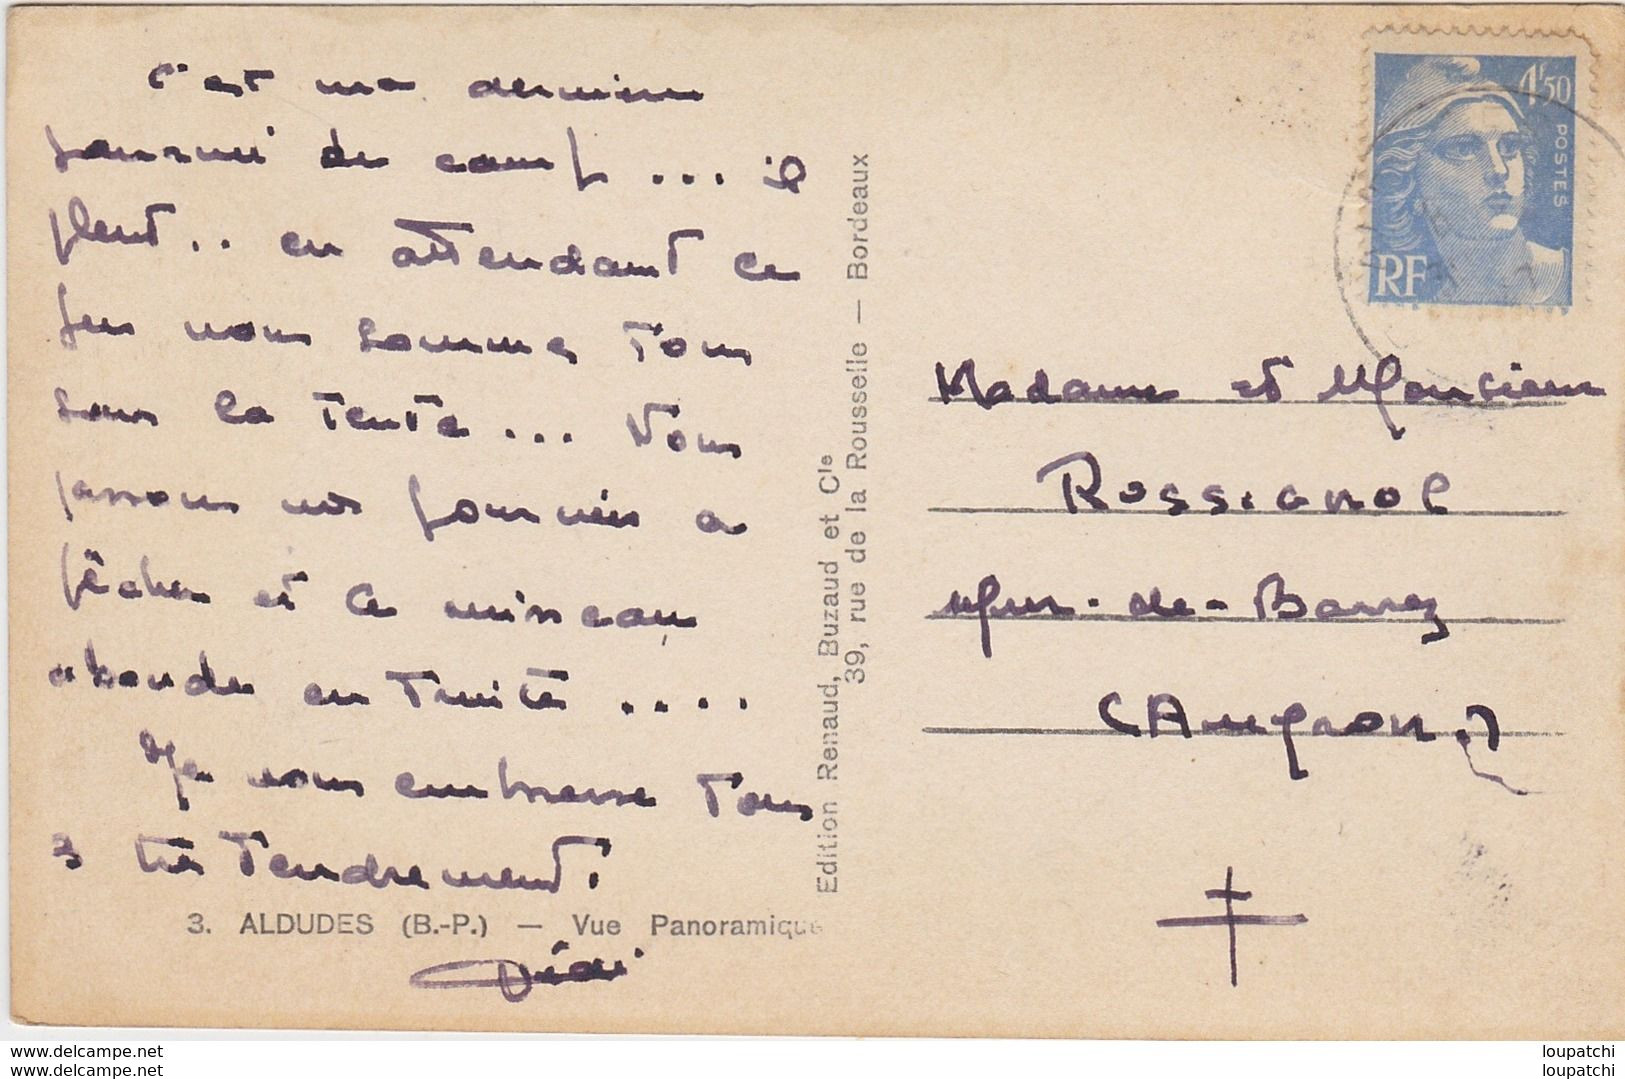 C'est ma dernière
journée de camp... il
pleut.. en attendant le
jeu nous sommes tous
sous la tente... Nous
passons nos journées à
pêcher et le ruisseau
abonde en truites ....
Je vous embrasse tous
3 très tendrement.
Dédé
3. ALDUDES (B.-P.) — Vue Panoramique
Edition Renaud, Buzaud et Cie
39, rue de la Rousselle — Bordeaux
4F50
POSTES
RF
Madame et Monsieur
ROSSIGNOL
Mur-de-Barrez
(Aveyron)
www.delcampe.net
www.delcampe.net
loupatchi
loupatchi